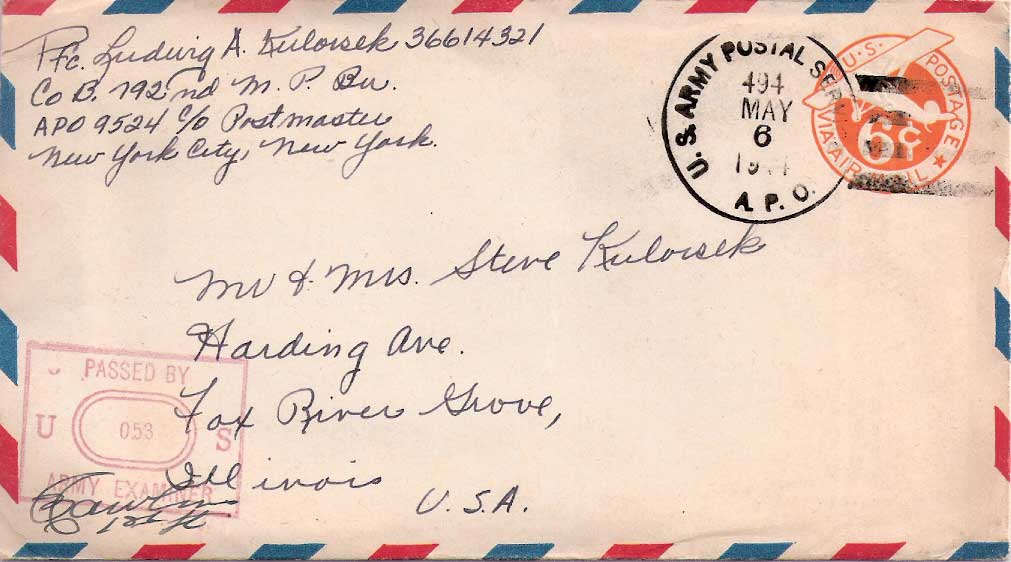 Pfc. Ludwig A. Kulovsek 36614321
Co B. 792nd M. P. Bn.
APO 9524 c/o Postmaster
New York City, New York.
U.S. ARMY POSTAL SERV
494
MAY
6
A. P. O.
U.S. POSTAGE
6¢
VIA AIR MAIL
Mr & Mrs. Steve Kulovsek
Harding Ave.
Fox River Grove,
Illinois
U.S.A.
PASSED BY
U 053 S
ARMY EXAMINER
1st Lt